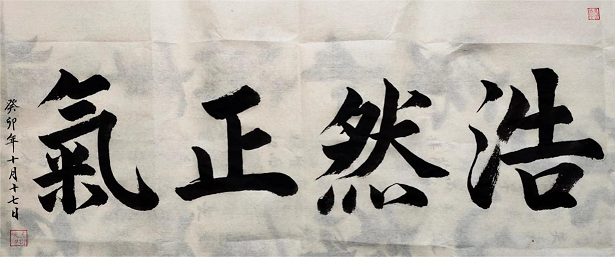 浩然正氣
癸卯年十月十七日